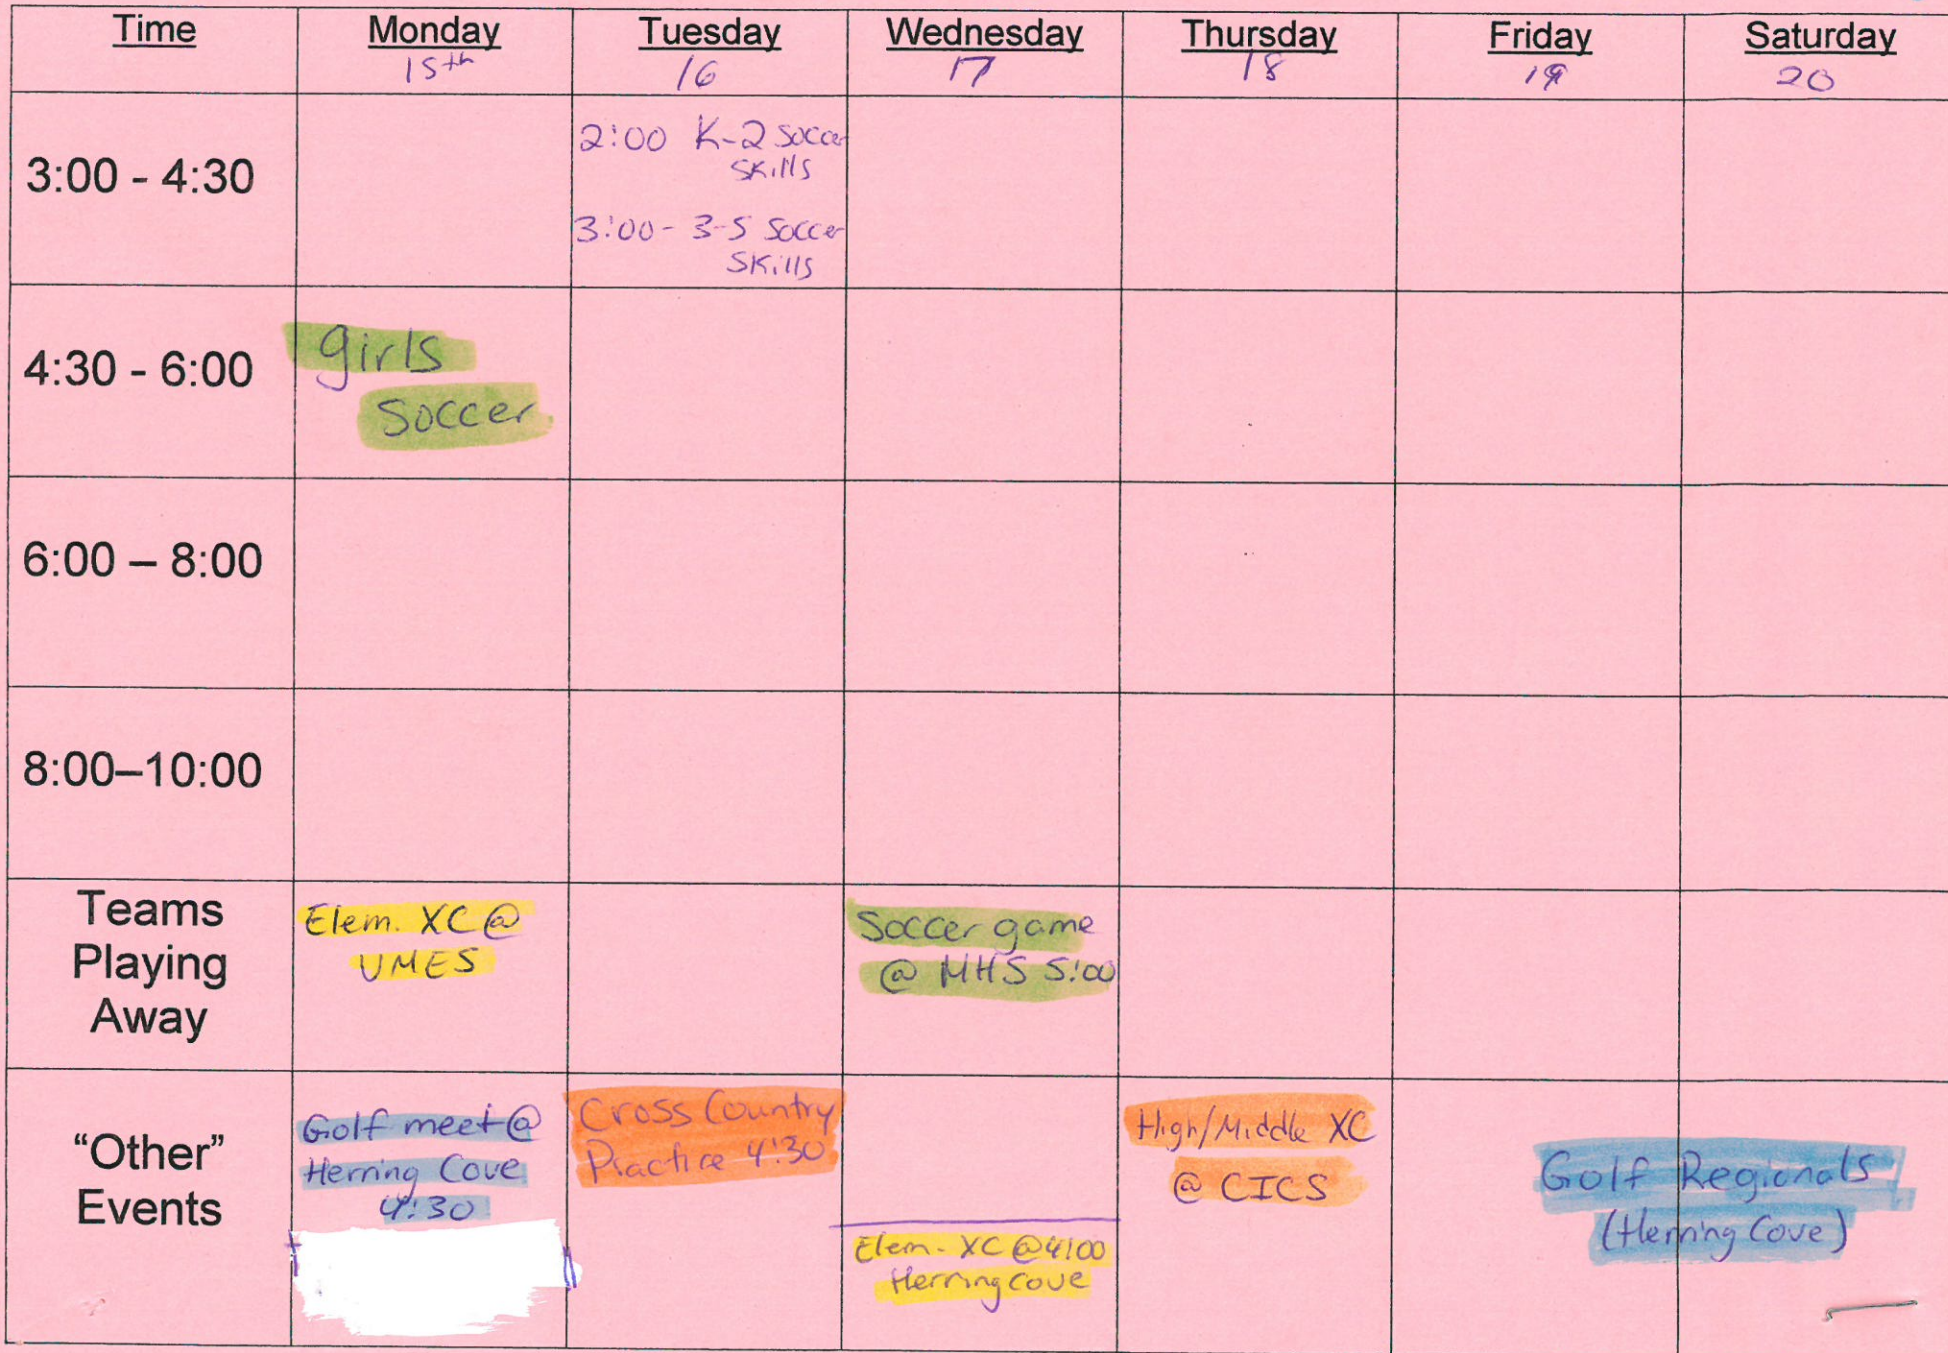 Time Monday Tuesday Wednesday Thursday Friday Saturday
15th 16 17 18 19 20
3:00 - 4:30
2:00 K-2 Soccer
Skills
3:00- 3-5 Soccer
Skills
4:30 - 6:00
girls
Soccer
6:00 – 8:00
8:00–10:00
Teams
Playing
Away
Elem. XC @
UMES
Soccer game
@ MHS 5:00
"Other"
Events
Golf meet @
Herring Cove
4:30
Cross Country
Practice 4:30
Elem. XC @ 4:00
Herring Cove
High/Middle XC
@ CICS
Golf Regionals
(Herring Cove)